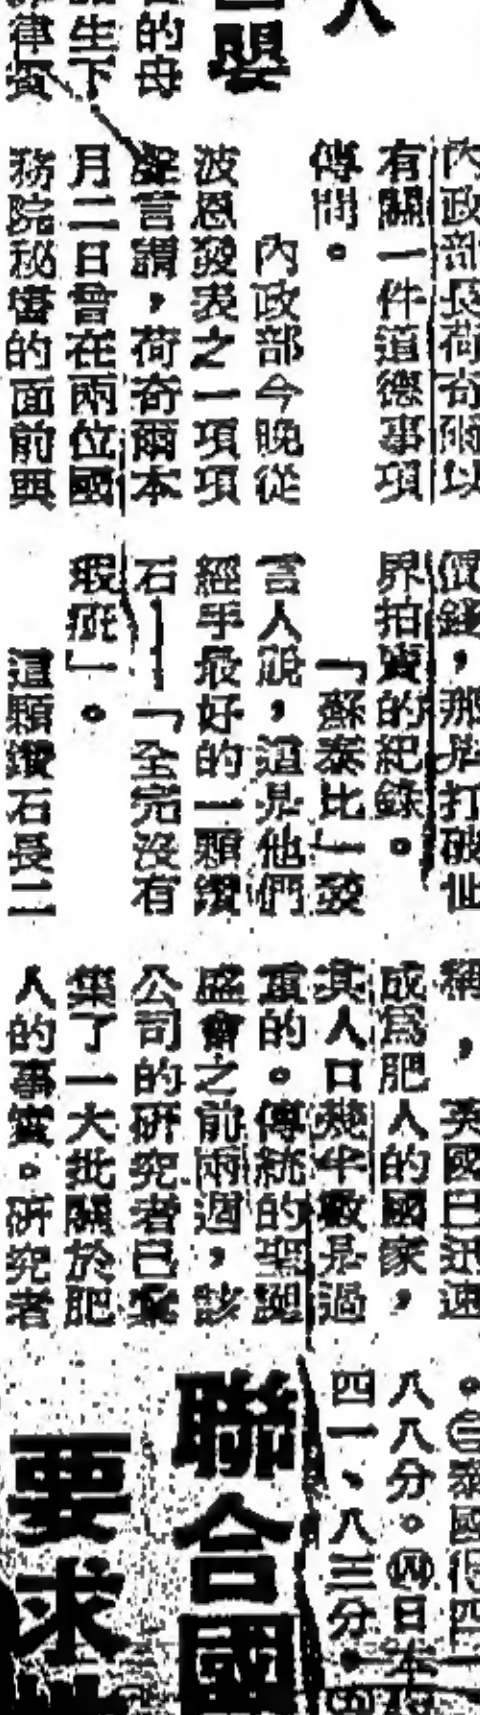 人
嬰
的母
生下
律賓
內政部長荷奇爾以
有關一件道德事項
傳問。
內政部今晚從
波恩發表之一項項
聲言謂，荷奇爾本
月二日曾在兩位國
務院秘書的面前與
價錢，那是打破世
界拍賣的紀錄。
「蘇泰比」發
言人說，這是他們
經手最好的一顆鑽
石——「全完沒有
瑕疵」。
這顆鑽石長二
稱，英國已迅速
成爲肥人的國家，
其人口幾半數是過
重的。傳統的聖誕
盛會之前兩週，該
公司的研究者已案
集了一大批關於肥
人的事實。研究者
。㊂泰國得四一
八八分。㊃日本得
四一、八三分，㊄
聯合國
要求